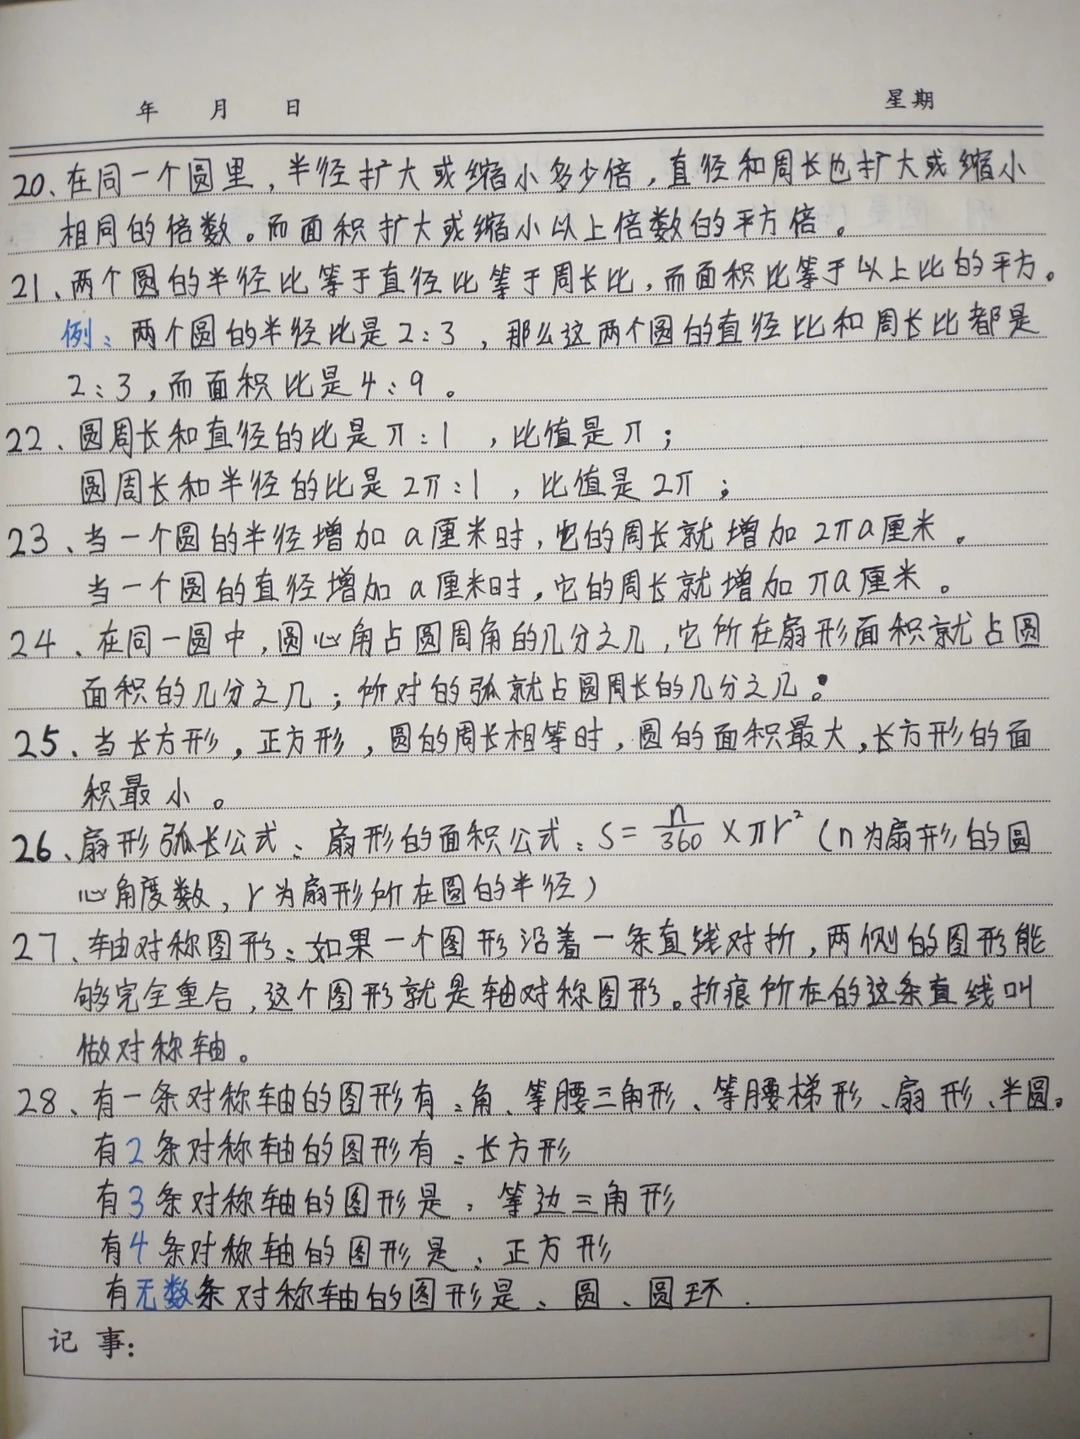 年 月 日 星期
20、在同一个圆里，半径扩大或缩小多少倍，直径和周长也扩大或缩小
相同的倍数。而面积扩大或缩小以上倍数的平方倍。
21、两个圆的半径比等于直径比等于周长比，而面积比等于以上比的平方。
例：两个圆的半径比是2：3，那么这两个圆的直径比和周长比都是
2：3，而面积比是4：9。
22、圆周长和直径的比是π：1，比值是π；
圆周长和半径的比是2π：1，比值是2π；
23、当一个圆的半径增加a厘米时，它的周长就增加2πa厘米。
当一个圆的直径增加a厘米时，它的周长就增加πa厘米。
24、在同一圆中，圆心角占圆周角的几分之几，它所在扇形面积就占圆
面积的几分之几；所对的弧就占圆周长的几分之几。
25、当长方形，正方形，圆的周长相等时，圆的面积最大，长方形的面
积最小。
26、扇形弧长公式：扇形的面积公式：S=n/360×πr²（n为扇形的圆
心角度数，r为扇形所在圆的半径）
27、轴对称图形：如果一个图形沿着一条直线对折，两侧的图形能
够完全重合，这个图形就是轴对称图形。折痕所在的这条直线叫
做对称轴。
28、有一条对称轴的图形有：角、等腰三角形、等腰梯形、扇形、半圆。
有2条对称轴的图形有：长方形
有3条对称轴的图形是：等边三角形
有4条对称轴的图形是：正方形
有无数条对称轴的图形是、圆、圆环.
记事：